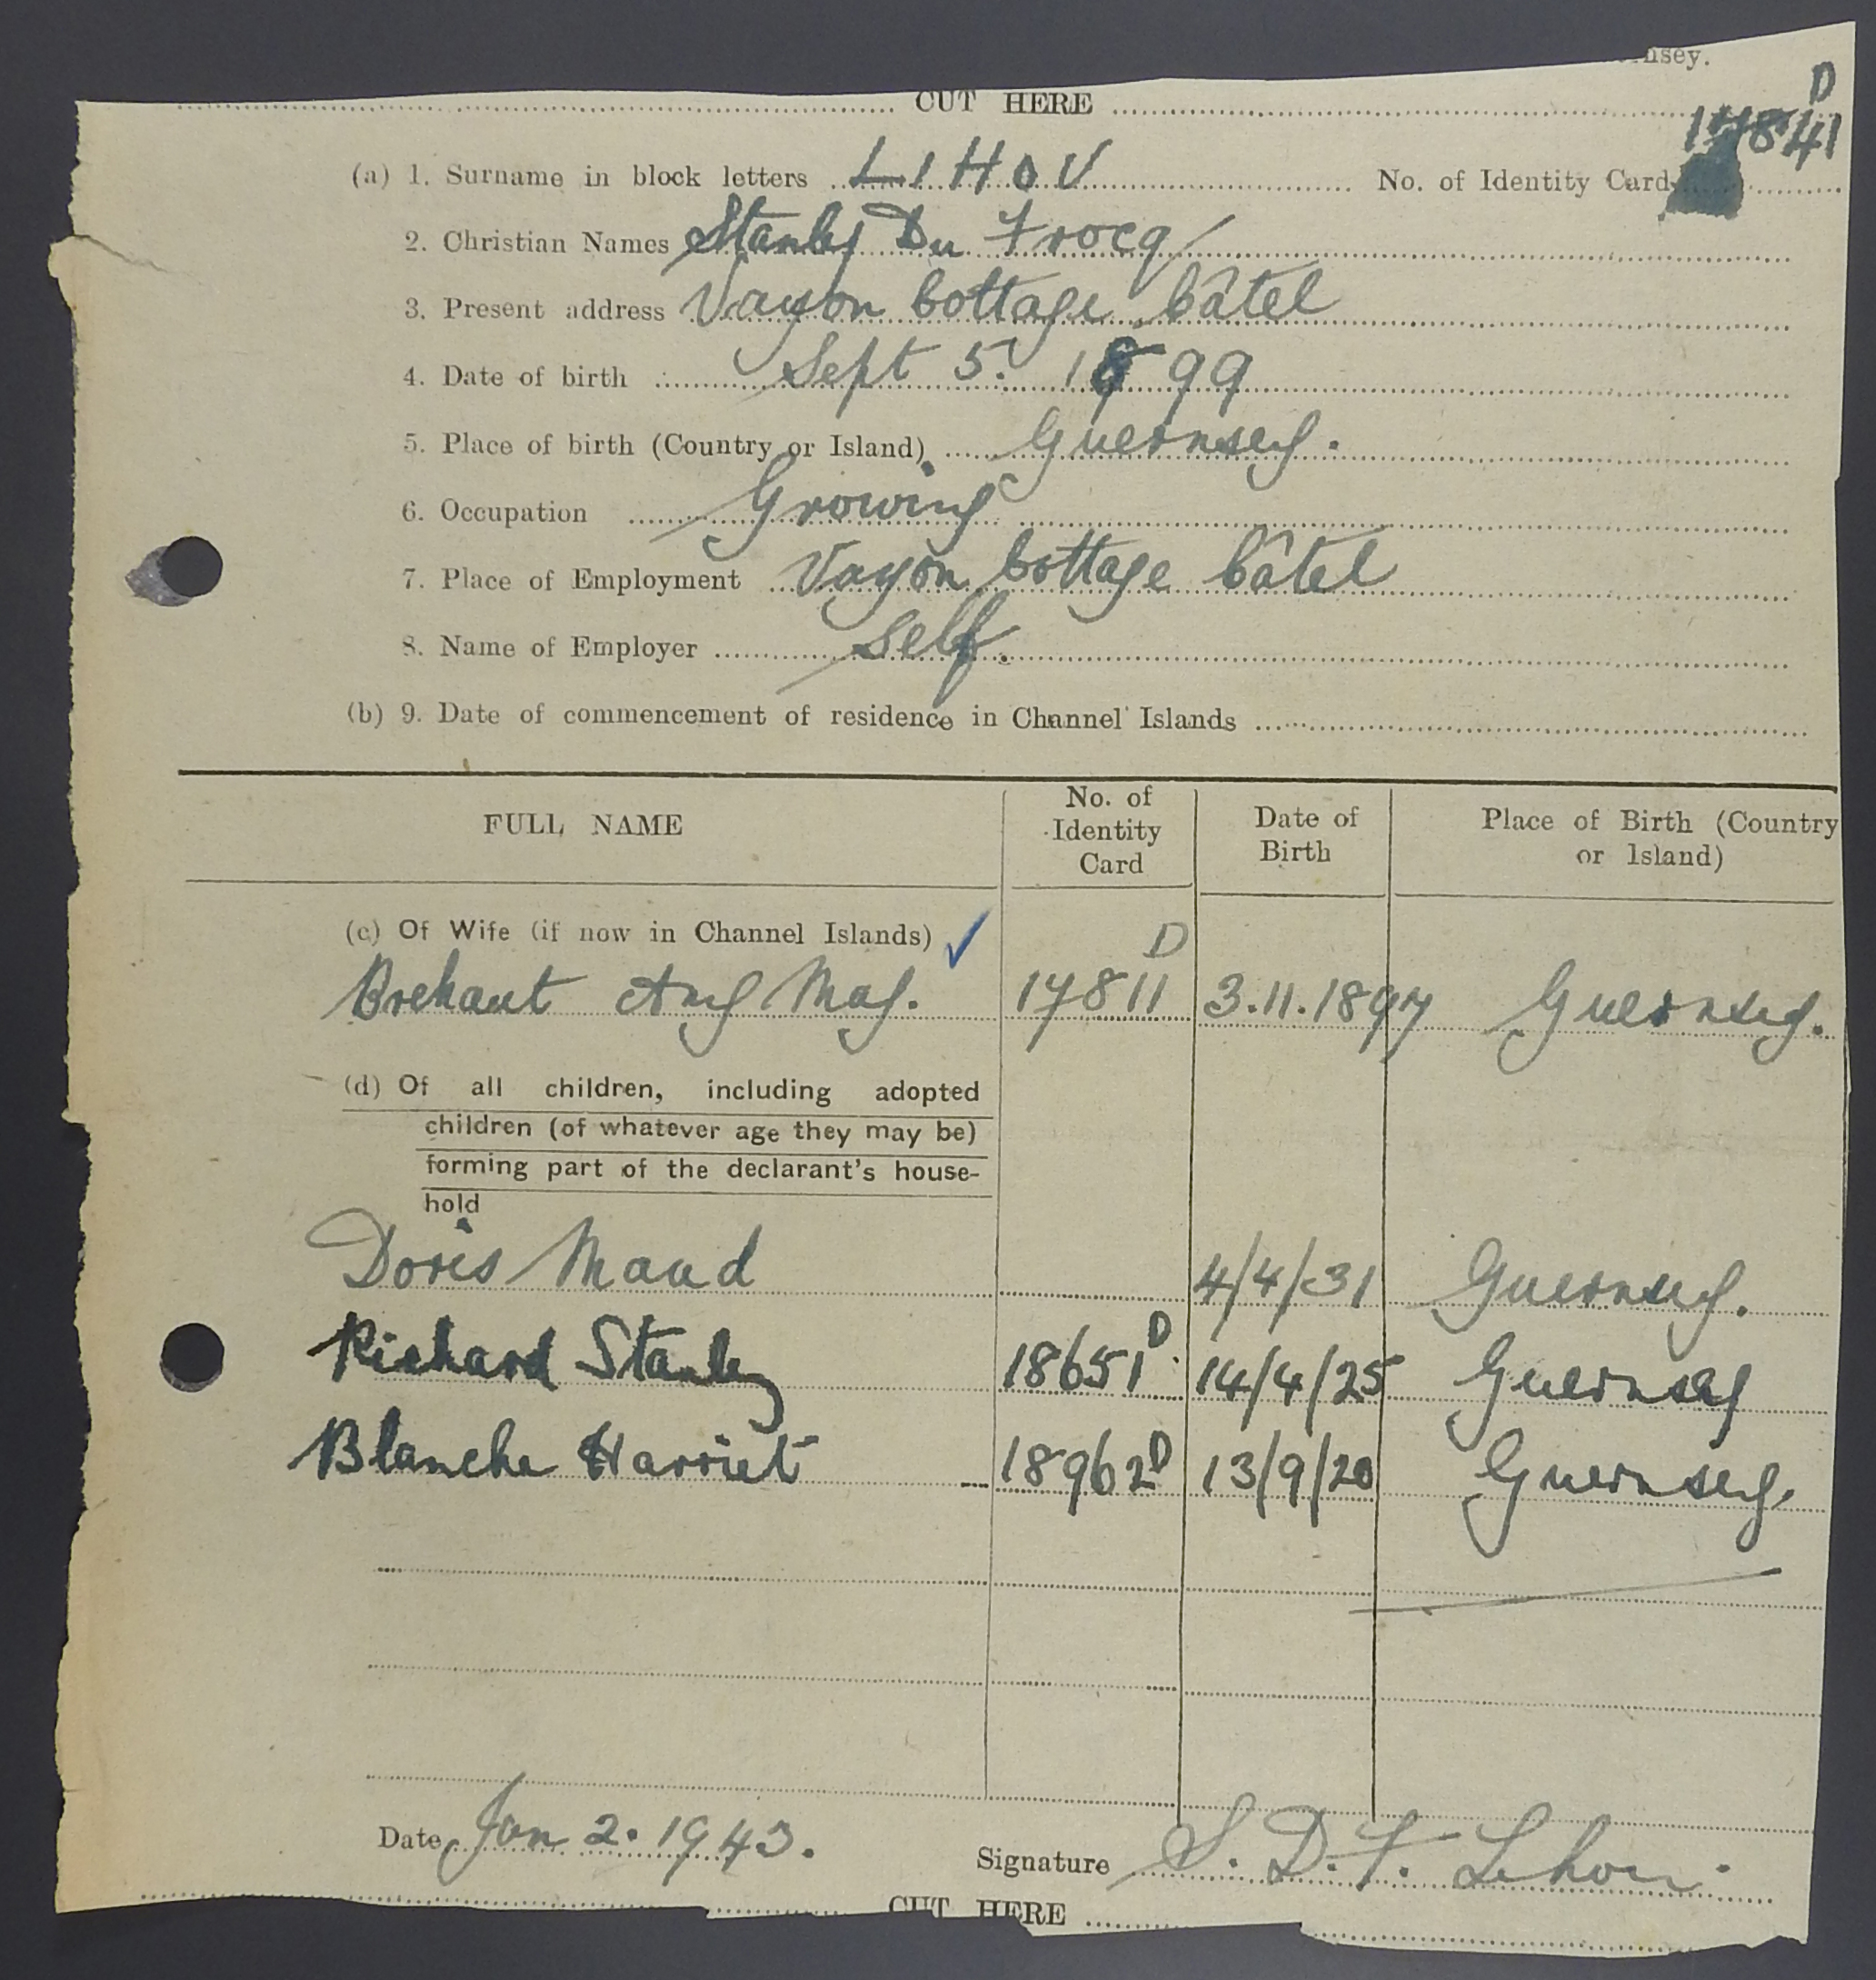 nsey.
CUT HERE
D
17841
(a) 1. Surname in block letters LIHOU No. of Identity Card
2. Christian Names Stanley Du Frocq
3. Present address Vazon Cottage Câtel
4. Date of birth Sept 5. 1899
5. Place of birth (Country or Island) Guernsey.
6. Occupation Growing
7. Place of Employment Vazon Cottage Câtel
8. Name of Employer Self.
(b) 9. Date of commencement of residence in Channel Islands
FULL NAME No. of Identity Card Date of Birth Place of Birth (Country or Island)
(c) Of Wife (if now in Channel Islands) ✓ D
Brehaut Amy May. 17811 3.11.1897 Guernsey.
(d) Of all children, including adopted
children (of whatever age they may be)
forming part of the declarant's house-
hold
Doris Maud 4/4/31 Guernsey.
Richard Stanley 18651D. 14/4/25 Guernsey
Blanche Harriet 18962D 13/9/20 Guernsey.
Date Jan 2. 1943. Signature S. D. F. Lihou.
CUT HERE